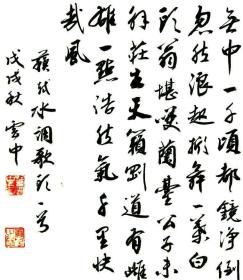 無中一千頃都鏡淨倒
忽然浪起掀舞一葉白
頭翁堪笑蘭臺公子未
解莊生天籟剛道有雌
雄一點浩然氣千里快
哉風
蘇軾水調歌頭一首
戊戌秋雲中